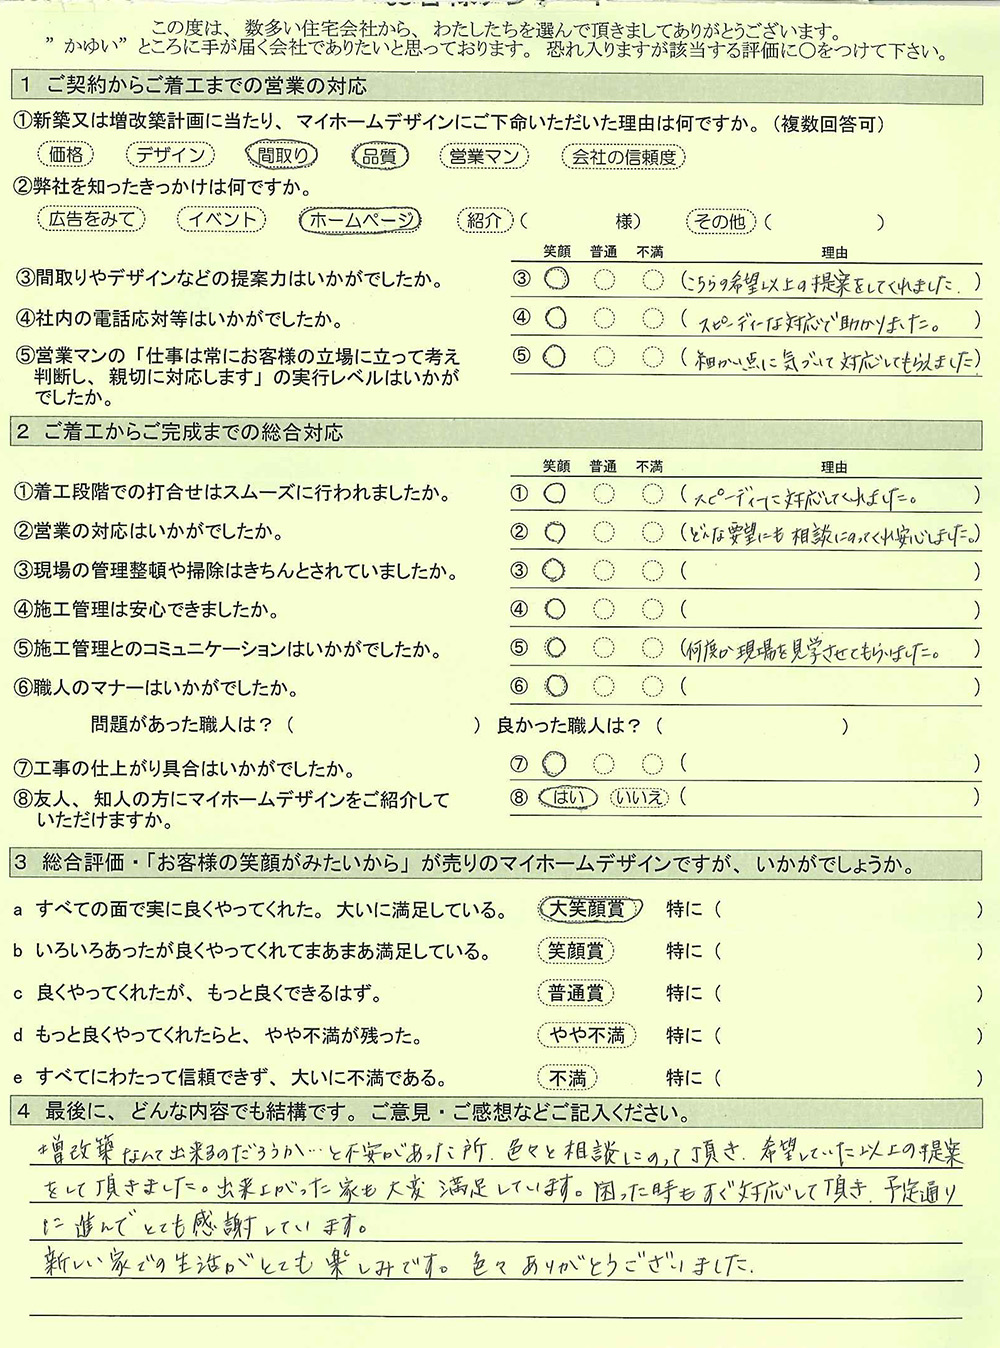 この度は、数多い住宅会社から、わたしたちを選んで頂きましてありがとうございます。
”かゆい”ところに手が届く会社でありたいと思っております。恐れ入りますが該当する評価に〇をつけて下さい。
1 ご契約からご着工までの営業の対応
①新築又は増改築計画に当たり、マイホームデザインにご下命いただいた理由は何ですか。（複数回答可）
価格 デザイン 間取り 品質 営業マン 会社の信頼度
②弊社を知ったきっかけは何ですか。
広告をみて イベント ホームページ 紹介（ 様） その他（ ）
笑顔 普通 不満 理由
③間取りやデザインなどの提案力はいかがでしたか。 ③ （こちらの希望以上の提案をしてくれました.）
④社内の電話応対等はいかがでしたか。 ④ （スピーディーな対応で助かりました。）
⑤営業マンの「仕事は常にお客様の立場に立って考え ⑤ （細かい点に気づいて対応してもらえました）
判断し、親切に対応します」の実行レベルはいかが
でしたか。
2 ご着工からご完成までの総合対応
笑顔 普通 不満 理由
①着工段階での打合せはスムーズに行われましたか。 ① （スピーディーに対応してくれました。）
②営業の対応はいかがでしたか。 ② （どんな要望にも相談にのってくれ安心しました。）
③現場の管理整頓や掃除はきちんとされていましたか。 ③ （ ）
④施工管理は安心できましたか。 ④ （ ）
⑤施工管理とのコミュニケーションはいかがでしたか。 ⑤ （何度か現場を見学させてもらいました。）
⑥職人のマナーはいかがでしたか。 ⑥ （ ）
問題があった職人は？（ ） 良かった職人は？（ ）
⑦工事の仕上がり具合はいかがでしたか。 ⑦ （ ）
⑧友人、知人の方にマイホームデザインをご紹介して ⑧ はい いいえ （ ）
いただけますか。
3 総合評価・「お客様の笑顔がみたいから」が売りのマイホームデザインですが、いかがでしょうか。
a すべての面で実に良くやってくれた。大いに満足している。 大笑顔賞 特に（ ）
b いろいろあったが良くやってくれてまあまあ満足している。 笑顔賞 特に（ ）
c 良くやってくれたが、もっと良くできるはず。 普通賞 特に（ ）
d もっと良くやってくれたらと、やや不満が残った。 やや不満 特に（ ）
e すべてにわたって信頼できず、大いに不満である。 不満 特に（ ）
4 最後に、どんな内容でも結構です。ご意見・ご感想などご記入ください。
増改築なんて出来るのだろうか…と不安があった所、色々と相談にのって頂き、希望していた以上の提案
をして頂きました。出来上がった家も大変満足しています。困った時もすぐ対応して頂き、予定通り
に進んでとても感謝しています。
新しい家での生活がとても楽しみです。色々ありがとうございました.